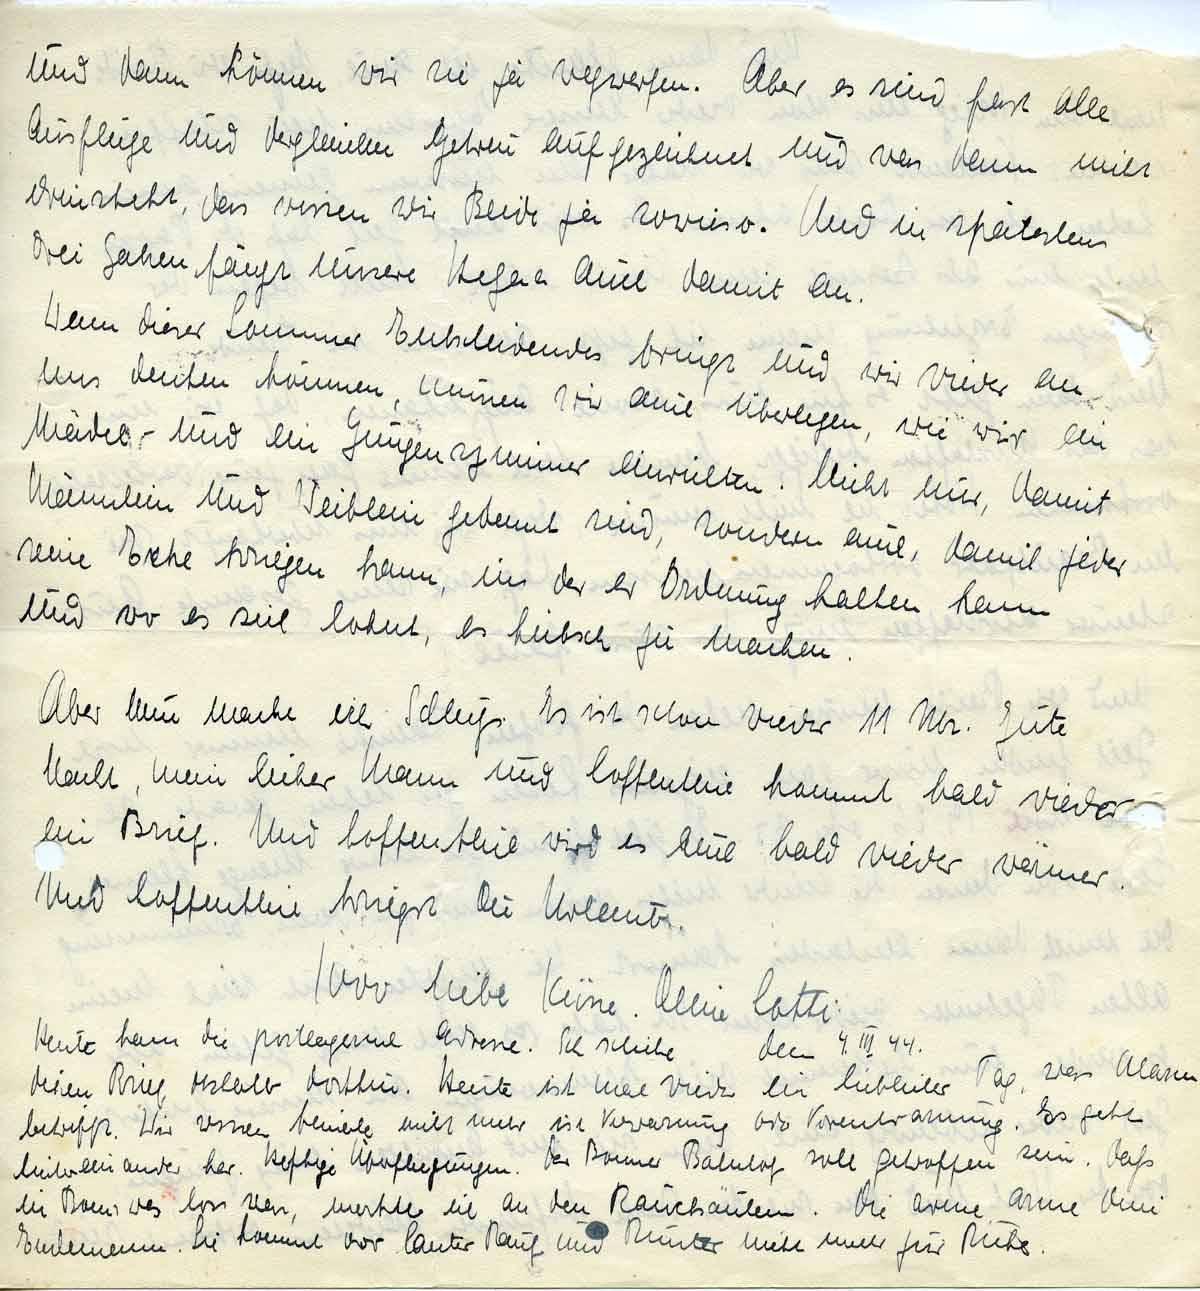 und dann können wir sie ja wegwerfen. Aber es sind fast alle
Ausflüge und dergleichen getreu aufgezeichnet und was dann nicht
drinsteht, das wissen wir Beide ja sowieso. Und in spätestens
drei Jahren fängt unsere Helga auch damit an.
Wenn dieser Sommer Entscheidendes bringt und wir wieder an
uns denken können, müssen wir auch überlegen, wie wir ein
Mädel- und ein Jungenzimmer einrichten. Nicht nur, damit
Männlein und Weiblein getrennt sind, sondern auch, damit jeder
seine Ecke kriegen kann, in der er Ordnung halten kann
und wo es sich lohnt, es hübsch zu machen.
Aber nun mache ich Schluß. Es ist schon wieder 11 Uhr. Gute
Nacht, mein lieber Mann und hoffentlich kommt bald wieder
ein Brief. Und hoffentlich wird es auch bald wieder wärmer.
Und hoffentlich kriegst Du Urlaub.
1000 liebe Küsse. Deine Lotti.
den 4. III 44.
Heute kam die postlagernd Adresse. Ich schicke
diesen Brief deshalb dorthin. Heute ist mal wieder ein lieblicher Tag, was Alarm
betrifft. Wir wissen beinahe nicht mehr ist Vorwarnung oder Vorentwarnung. Es geht
hintereinander her. Heftige Überfliegungen. Der Bonner Bahnhof soll getroffen sein. Daß
in Bonn was los war, merkte ich an den Rauchsäulen. Die arme, arme
Sie kommt vor lauter Rauf und Runter nicht mehr zur Ruhe.